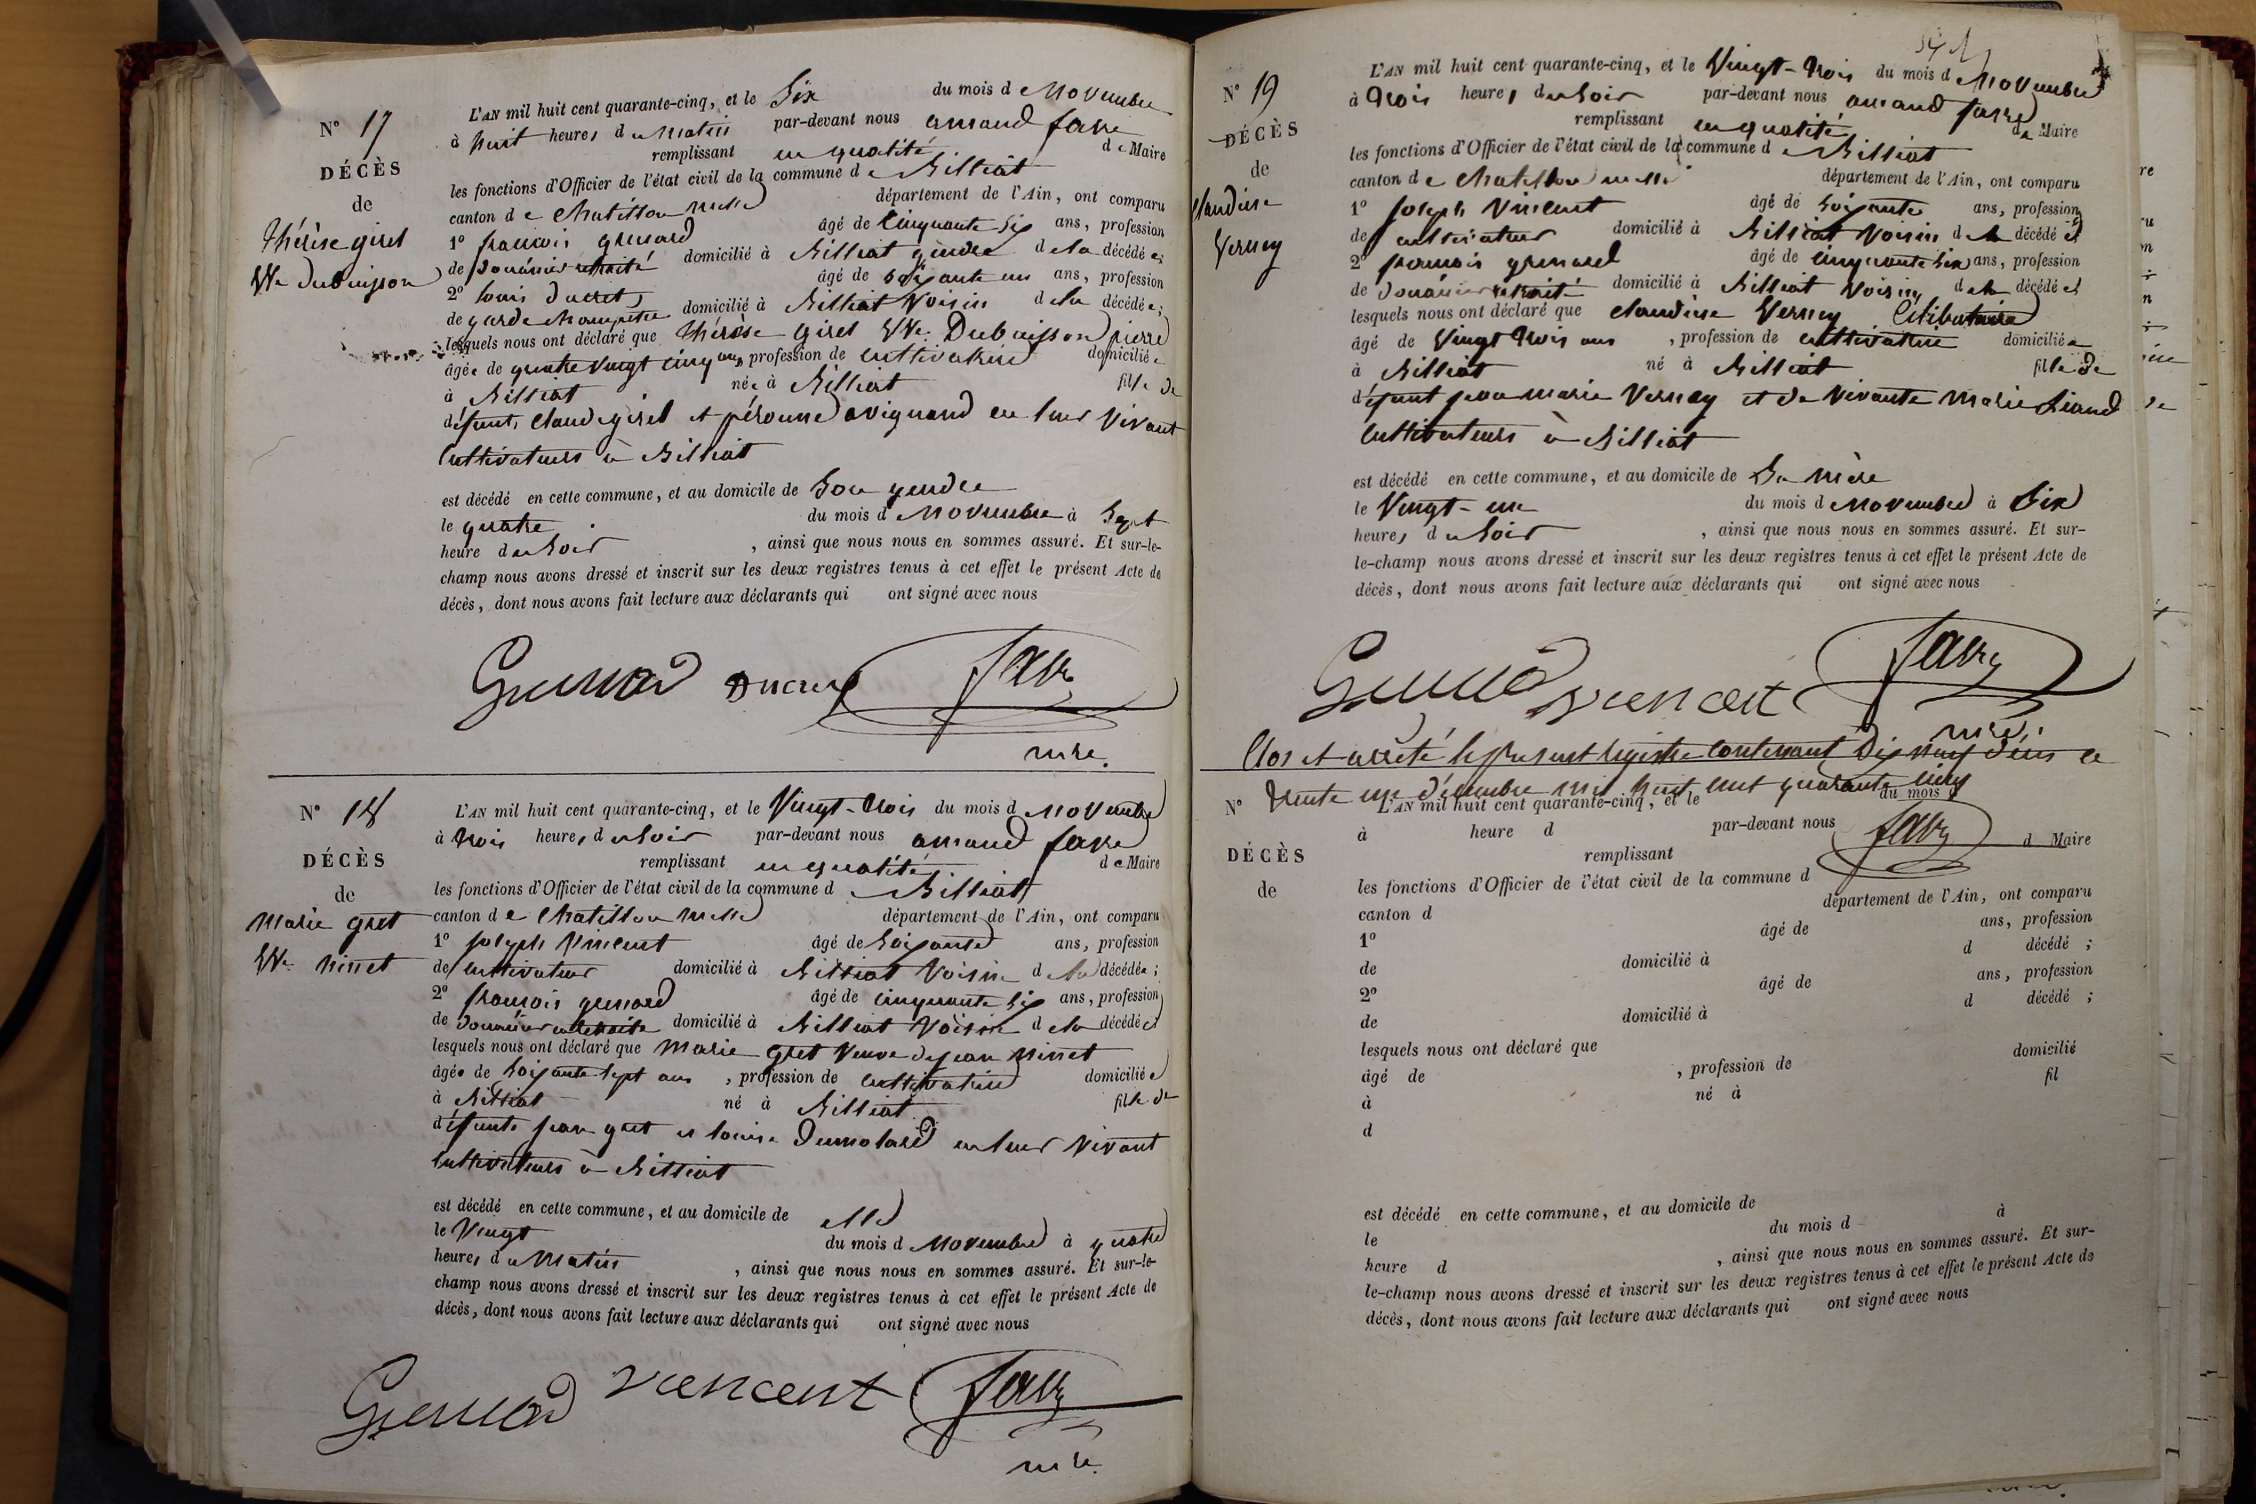 N° 17
DÉCÈS
de
thérèse girel
Vve dubuisson
L'AN mil huit cent quarante-cinq, et le Six du mois de Novembre
à huit heures du matin par-devant nous amand favre
remplissant en qualité de Maire
les fonctions d'Officier de l'état civil de la commune de Billiat
canton de Chatillon département de l'Ain, ont comparu
1° françois grenard âgé de Cinquante Six ans, profession
de douanier retraité domicilié à Billiat gendre de la décédée;
2° louis ducret âgé de soixante un ans, profession
de garde champetre domicilié à Billiat Voisin de la décédée;
lesquels nous ont déclaré que thérèse girel Vve Dubuisson pierre
âgée de quatre vingt cinq ans, profession de cultivatrice domiciliée
à Billiat née à Billiat fille de
défunts Claude girel et péronne avignand en leur vivant
Cultivateurs à Billiat
est décédé en cette commune, et au domicile de Son gendre
le quatre du mois de Novembre à Sept
heure du Soir, ainsi que nous nous en sommes assuré. Et sur-le-
champ nous avons dressé et inscrit sur les deux registres tenus à cet effet le présent Acte de
décès, dont nous avons fait lecture aux déclarants qui ont signé avec nous
Grenard Ducret favre
mre.
N° 18
DÉCÈS
de
Marie gret
Vve ninet
L'AN mil huit cent quarante-cinq, et le Vingt-trois du mois de Novembre
à trois heures du Soir par-devant nous amand favre
remplissant en qualité de Maire
les fonctions d'Officier de l'état civil de la commune d Billiat
canton de Chatillon département de l'Ain, ont comparu
1° joseph Vincent âgé de Soixante ans, profession
de Cultivateur domicilié à Billiat Voisin de la décédée;
2° françois grenard âgé de cinquante Six ans, profession
de douanier domicilié à Billiat Voisin de la décédée
lesquels nous ont déclaré que Marie gret Veuve de jean ninet
âgée de Soixante Sept ans, profession de Cultivatrice domiciliée
à Billiat né à Billiat fille de
défunts jean gret et louise Dumolard en leur vivant
Cultivateurs à Billiat
est décédé en cette commune, et au domicile de elle
le Vingt du mois de Novembre à quatre
heures du Matin, ainsi que nous nous en sommes assuré. Et sur-le-
champ nous avons dressé et inscrit sur les deux registres tenus à cet effet le présent Acte de
décès, dont nous avons fait lecture aux déclarants qui ont signé avec nous
Grenard Vincent favre
mre.
N° 19
DÉCÈS
de
Claudine
Verney
L'AN mil huit cent quarante-cinq, et le Vingt-trois du mois de Novembre
à trois heures du Soir par-devant nous amand favre
remplissant en qualité de Maire
les fonctions d'Officier de l'état civil de la commune de Billiat
canton de Chatillon département de l'Ain, ont comparu
1° joseph Vincent âgé de Soixante ans, profession
de cultivateur domicilié à Billiat Voisin de la décédée
2° françois grenard âgé de Cinquante Six ans, profession
de douanier retraité domicilié à Billiat Voisin de la décédée
lesquels nous ont déclaré que claudine Verney Célibataire
âgé de Vingt trois ans, profession de cultivatrice domiciliée
à Billiat né à Billiat fille de
défunt jean marie Verney et de Vivante Marie
Cultivateurs à Billiat
est décédé en cette commune, et au domicile de Sa Mère
le Vingt-un du mois de Novembre à Six
heures du Soir, ainsi que nous nous en sommes assuré. Et sur-
le-champ nous avons dressé et inscrit sur les deux registres tenus à cet effet le présent Acte de
décès, dont nous avons fait lecture aux déclarants qui ont signé avec nous
Grenard Vincent favre
mre
Clos et arrêté le présent registre contenant Dix neuf décès ce
trente un décembre mil huit cent quarante cinq
favre
N°
DÉCÈS
de
L'AN mil huit cent quarante-cinq, et le du mois d
à heure d par-devant nous
remplissant d Maire
les fonctions d'Officier de l'état civil de la commune d
canton d département de l'Ain, ont comparu
1° âgé de ans, profession
de domicilié à d décédé;
2° âgé de ans, profession
de domicilié à d décédé;
lesquels nous ont déclaré que
âgé de, profession de domicilié
à né à fil
d
est décédé en cette commune, et au domicile de
le du mois d à
heure d, ainsi que nous nous en sommes assuré. Et sur-
le-champ nous avons dressé et inscrit sur les deux registres tenus à cet effet le présent Acte de
décès, dont nous avons fait lecture aux déclarants qui ont signé avec nous